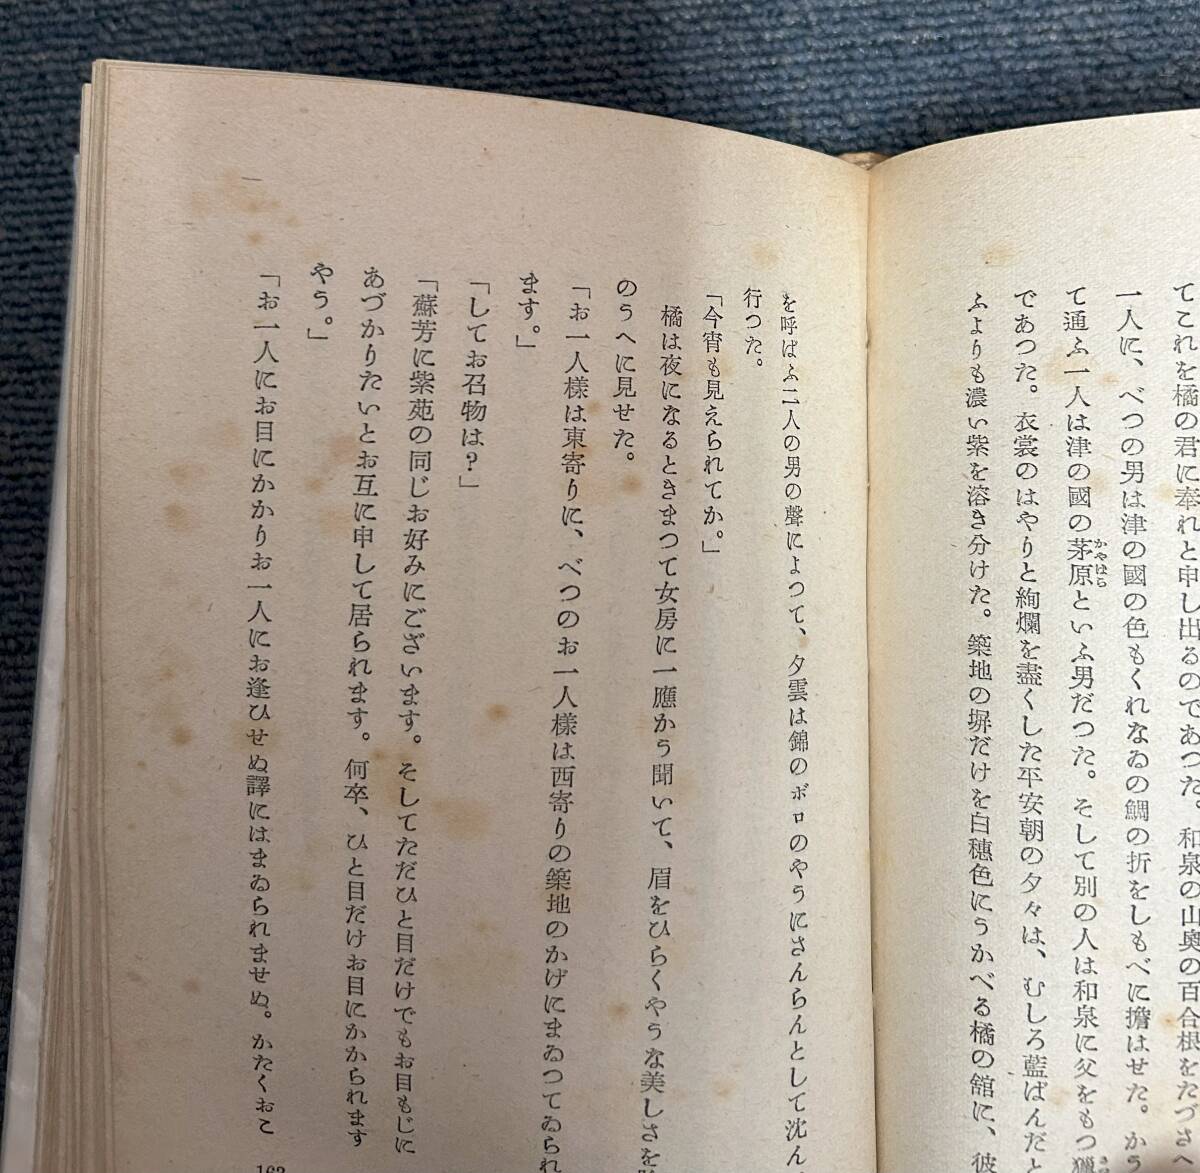 てこれを橘の君に奉れと申し出るのであつた。和泉の山奧の百合根をたづさへ
一人に、べつの男は津の國の色もくれなゐの鯛の折をしもべに擔はせた。かう
て通ふ一人は津の國の茅原といふ男だつた。そして別の人は和泉に父をもつ獵
かやはら
であつた。衣裳のはやりと絢爛を盡くした平安朝の夕々は、むしろ藍ばんだと
ふよりも濃い紫を溶き分けた。築地の塀だけを白穗色にうかべる橘の館に、彼
を呼ばふ二人の男の聲によつて、夕雲は錦のボロのやうにさんらんとして沈ん
行つた。
「今宵も見えられてか。」
橘は夜になるときまつて女房に一應かう聞いて、眉をひらくやうな美しさを
のうへに見せた。
「お一人樣は東寄りに、べつのお一人樣は西寄りの築地のかげにまゐつてゐられ
ます。」
「してお召物は?」
「蘇芳に紫苑の同じお好みにございます。そしてただひと目だけでもお目もじに
あづかりたいとお互に申して居られます。何卒、ひと目だけお目にかかられます
やう。」
「お一人にお目にかかりお一人にお逢ひせぬ譯にはまゐられませぬ。かたくおこ